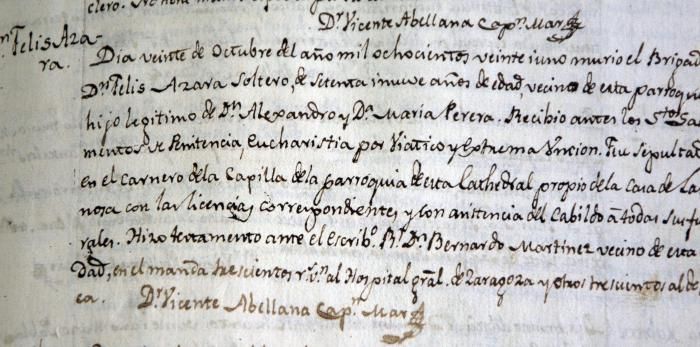 clero. No
Dr. Vicente Abellana Capn. Mar
n. Felis Aza-
ra.
Dia veinte de Octubre del año mil ochocientos veinte iuno murio el Brigad
Dn. Felis Azara Soltero, de setenta inueve años de edad, vecino de esta parroquia
hijo legitimo de Dn. Alexandro y Da. Maria Perera. Recibio antes los Stos. Sa
mentos de Penitencia, Eucharistia por Viatico y Extrema Uncion. Fue sepultad
en el Carnero de la Capilla de la parroquia de esta Cathedral propio de la Casa de La
nosa con las licencias correspondientes y con asistencia del Cabildo à todas sus fu
rales. Hizo testamento ante el Escribo. Rl. Dn. Bernardo Martinez vecino de esta
dad, en el manda trescientos rs. vn. al Hospital gral. de Zaragoza y otros trescientos al de
ca. Dr. Vicente Abellana Capn. Mar